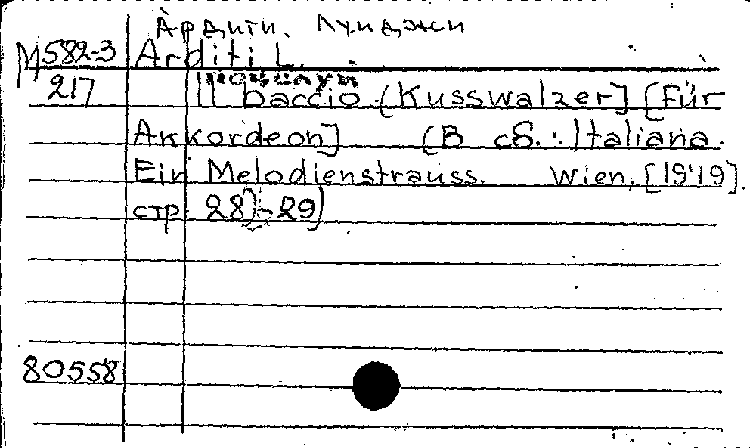 Ардити, Луиджи
М582-3 Arditi L.
217 Il baccio (Kusswalzer] [Für
Akkordeon] (В сб.: Italiana.
Ein Melodienstrauss. Wien, [1919].
стр. 28)-29)
80558